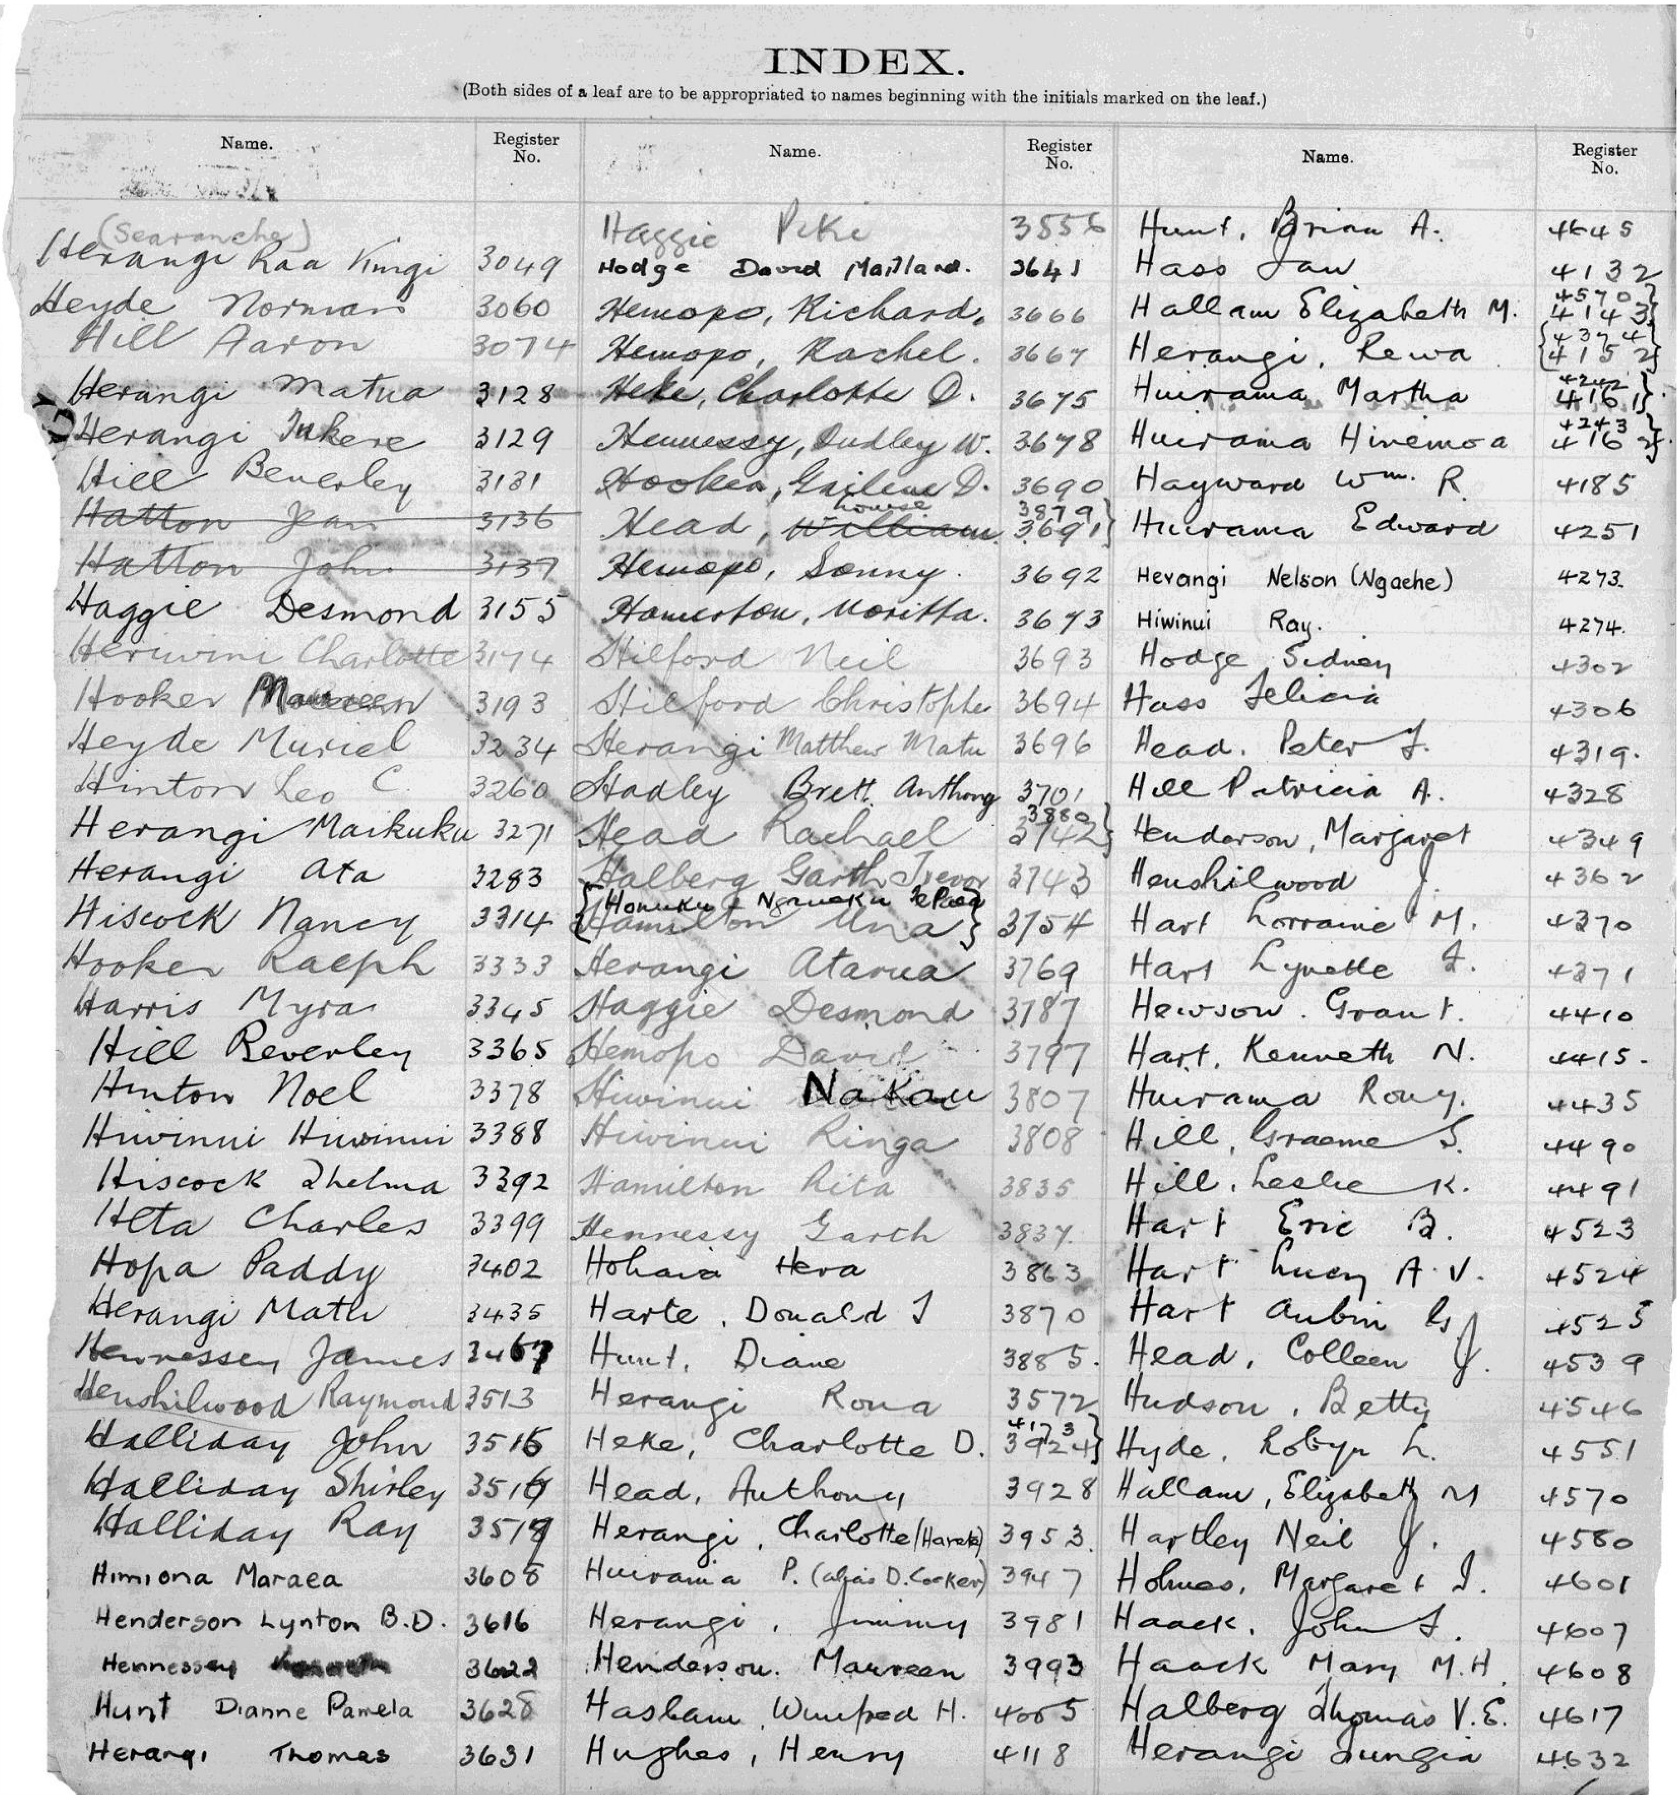 INDEX.
(Both sides of a leaf are to be appropriated to names beginning with the initials marked on the leaf.)
Name. Register No. Name. Register No. Name. Register No.
(Searancke)
Herangi Raa Kingi 3049
Heyde Norman 3060
Hill Aaron 3074
Herangi Matua 3128
Herangi Tukere 3129
Hill Beverley 3131
Hatton Jean 3136
Hatton John 3137
Haggie Desmond 3155
Heriwini Charlotte 3174
Hooker Maureen 3193
Heyde Muriel 3234
Hinton Leo C. 3260
Herangi Maikuku 3271
Herangi Ata 3283
Hiscock Nancy 3314
Hooker Ralph 3333
Harris Myra 3345
Hill Beverley 3365
Hinton Noel 3378
Hiwinui Hiwinui 3388
Hiscock Thelma 3392
Heta Charles 3399
Hopa Paddy 3402
Herangi Matu 3435
Hennessey James
Henshilwood Raymond 3513
Halliday John
Halliday Shirley
Halliday Ray
Himiona Maraea 3608
Henderson Lynton B.D. 3616
Hennessey 3622
Hunt Dianne Pamela 3628
Herangi Thomas 3631
Haggie Piki 3556
Hodge David Maitland. 3641
Hemopo, Richard. 3666
Hemopo, Rachel. 3667
Heke, Charlotte D. 3675
Hennessy, Dudley W. 3678
Hooker, Gailene D. 3690
house 3879
Head, William 3691}
Hemopo, Sonny. 3692
Hamerton, 3673
Hilford Neil 3693
Hilford Christophe 3694
Herangi Matthew Matu 3696
Hadley Brett Anthony 3701
3880
Head Rachael 3742}
Halberg Garth Trevor 3743
{Honuku Te Paea
{Hamilton Una} 3754
Herangi Atarua 3769
Haggie Desmond 3787
Hemopo David 3797
Hiwinui Nakau 3807
Hiwinui Ringa 3808
Hamilton Rita 3835
Hennessy Garth 3837.
Hohaia Hera 3863
Harte, Donald J 3870
Hunt, Diane 3885.
Herangi Rona 3572
4173
Heke, Charlotte D. 3924}
Head, Anthony 3928
Herangi, Charlotte 3953.
Huirama P. (alias D. Cocker) 3947
Herangi, Jimmy 3981
Henderson. Maureen 3993
Haslam, Winifred H. 4005
Hughes, Henry 4118
Hunt, Brian A. 4645
Hass Jaw 4132
4570}
Hallam Elizabeth M. 4143}
{4374}
Herangi, Rewa {4152}
4242}
Huirama Martha 4161}
4243}
Huirama Hinemoa 4162}
Hayward Wm. R. 4185
Huirama Edward 4251
Herangi Nelson (Ngaehe) 4273.
Hiwinui Ray. 4274.
Hodge Sidney 4302
Hass Felicia 4306
Head. Peter J. 4319.
Hill Patricia A. 4328
Henderson, Margaret 4349
Henshilwood J. 4362
Hart Lorraine M. 4370
Hart Lynette J. 4371
Hewson. Grant. 4410
Hart, Kenneth N. 4415.
Huirama Rony. 4435
Hill, Graeme S. 4490
Hill, Leslie K. 4491
Hart Eric B. 4523
Hart Lucy A.V. 4524
Hart Aubin G J 4525
Head, Colleen J. 4539
Hudson, Betty 4546
Hyde, Robyn L. 4551
Hallam, Elizabeth M 4570
Hartley Neil J. 4580
Holmes, Margaret J. 4601
Haack, John J. 4607
Haack Mary M.H. 4608
Halberg Thomas V.E. 4617
Herangi Tungia 4632